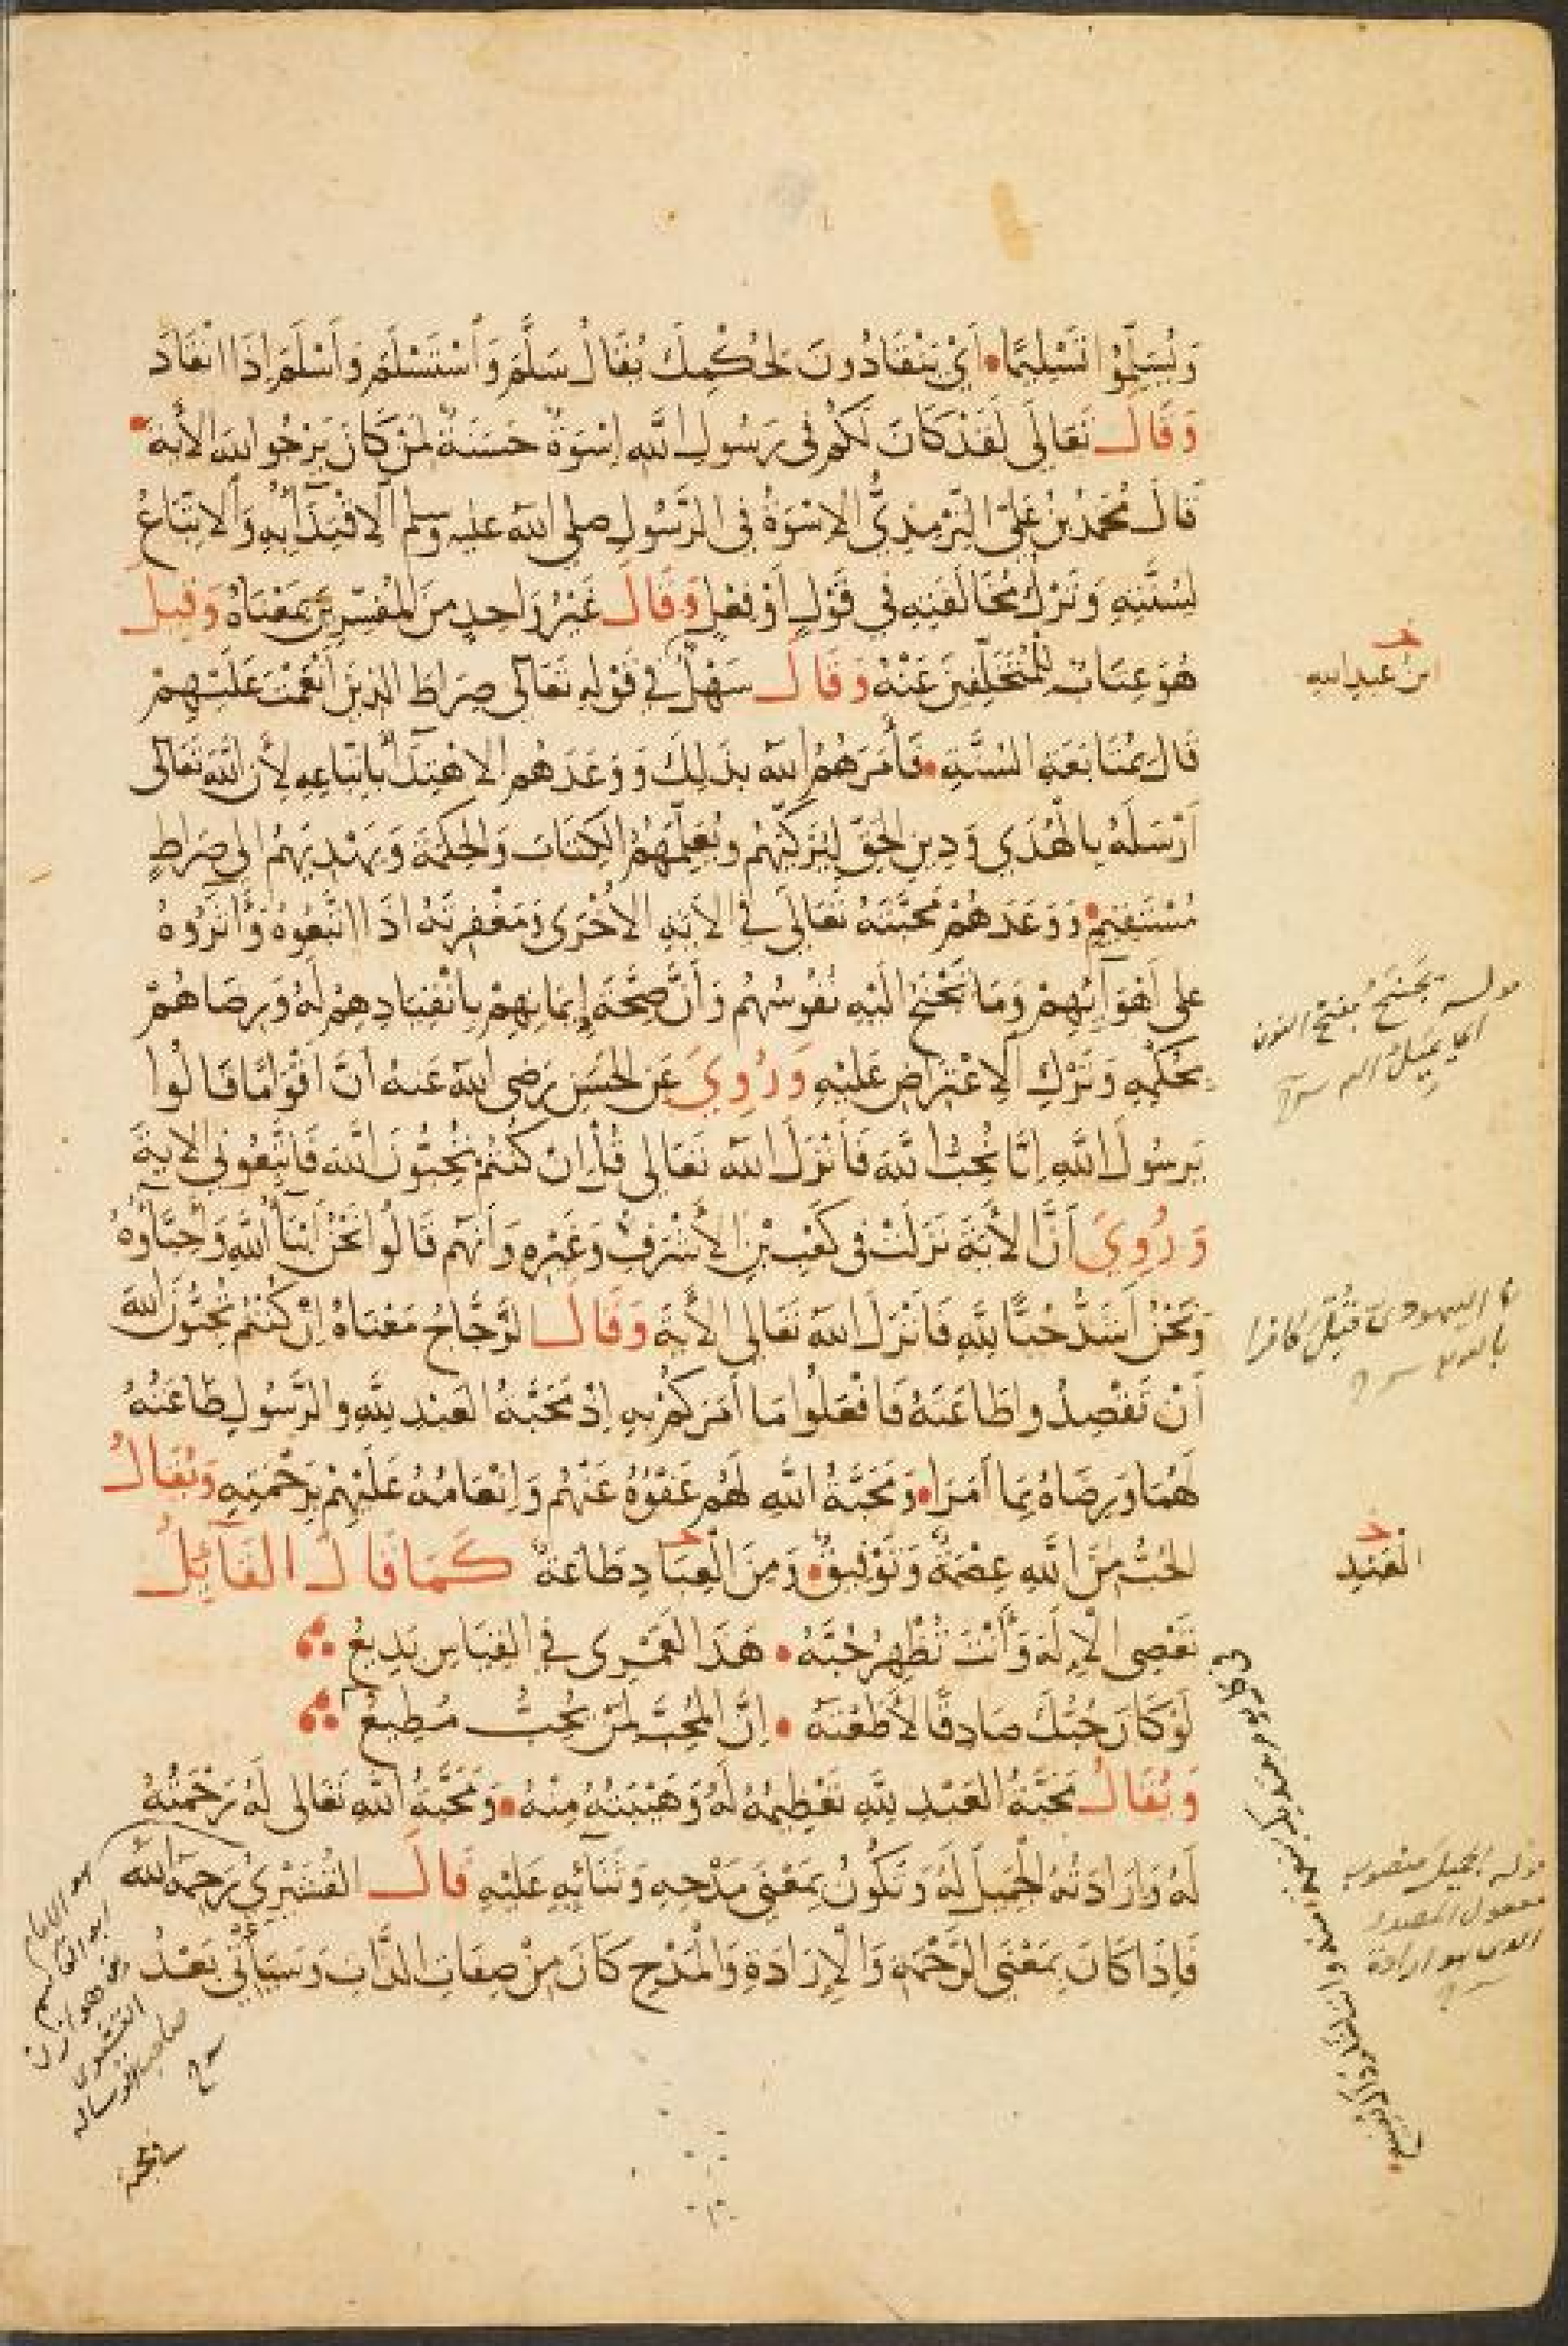 وَيُسَلِّمُوا تَسْلِيمًا • أَيْ يَنْقَادُونَ لِحُكْمِكَ يُقَالُ سَلَّمَ وَاسْتَسْلَمَ وَأَسْلَمَ إِذَا انْقَادَ
وَقَالَ تَعَالَى لَقَدْ كَانَ لَكُمْ فِي رَسُولِ اللَّهِ إِسْوَةٌ حَسَنَةٌ لِمَنْ كَانَ يَرْجُوا اللَّهَ الْآيَةَ •
قَالَ مُحَمَّدُ بْنُ عَلِيٍّ التِّرْمِذِيُّ الْإِسْوَةُ فِي الرَّسُولِ صلى الله عليه وسلم الْاِقْتِدَاءُ بِهِ وَالْاِتِّبَاعُ
لِسُنَّتِهِ وَتَرْكُ مُخَالَفَتِهِ فِي قَوْلٍ أَوْ فِعْلٍ وَقَالَ غَيْرُ وَاحِدٍ مِنَ الْمُفَسِّرِينَ بِمَعْنَاهُ وَقِيلَ
هُوَ عِتَابٌ لِلْمُتَخَلِّفِينَ عَنْهُ وَقَالَ سَهْلٌ فِي قَوْلِهِ تَعَالَى صِرَاطَ الَّذِينَ أَنْعَمْتَ عَلَيْهِمْ
خ
ابْنُ عَبْدِ اللَّهِ
قَالَ بِمُتَابَعَةِ السُّنَّةِ • فَأَمَرَهُمُ اللَّهُ بِذَلِكَ وَوَعَدَهُمُ الْاِهْتِدَاءَ بِاتِّبَاعِهِ لِأَنَّ اللَّهَ تَعَالَى
أَرْسَلَهُ بِالْهُدَى وَدِينِ الْحَقِّ لِيُزَكِّيَهُمْ وَيُعَلِّمَهُمُ الْكِتَابَ وَالْحِكْمَةَ وَيَهْدِيَهُمْ إِلَى صِرَاطٍ
مُسْتَقِيمٍ • وَوَعَدَهُمْ مَحَبَّتَهُ تَعَالَى فِي الْآيَةِ الْأُخْرَى وَمَغْفِرَتَهُ إِذَا اتَّبَعُوهُ وَآثَرُوهُ
عَلَى أَهْوَائِهِمْ وَمَا تَجْنَحُ إِلَيْهِ نُفُوسُهُمْ وَأَنَّ صِحَّةَ إِيمَانِهِمْ بِانْقِيَادِهِمْ لَهُ وَرِضَاهُمْ
قوله تَجْنَحُ بفتح النون
اي يَمِيلُ اليه
بِحُكْمِهِ وَتَرْكِ الْاِعْتِرَاضِ عَلَيْهِ وَرُوِيَ عَنِ الْحَسَنِ رَضِيَ اللَّهُ عَنْهُ أَنَّ أَقْوَامًا قَالُوا
يَرَسُولَ اللَّهِ إِنَّا نُحِبُّ اللَّهَ فَأَنْزَلَ اللَّهُ تَعَالَى قُلْ إِنْ كُنْتُمْ تُحِبُّونَ اللَّهَ فَاتَّبِعُونِي الْآيَةَ
وَرُوِيَ أَنَّ الْآيَةَ نَزَلَتْ فِي كَعْبِ بْنِ الْأَشْرَفِ وَغَيْرِهِ وَأَنَّهُمْ قَالُوا نَحْنُ أَبْنَاءُ اللَّهِ وَأَحِبَّاؤُهُ
وَنَحْنُ أَشَدُّ حُبًّا لِلَّهِ فَأَنْزَلَ اللَّهُ تَعَالَى الْآيَةَ وَقَالَ الزَّجَّاجُ مَعْنَاهُ إِنْ كُنْتُمْ تُحِبُّونَ اللَّهَ
اليهودى قُتِلَ كافرا
أَنْ تَقْصِدُوا طَاعَتَهُ فَافْعَلُوا مَا أَمَرَكُمْ بِهِ إِذْ مَحَبَّةُ الْعَبْدِ لِلَّهِ وَالرَّسُولِ طَاعَتُهُ
لَهُمَا وَرِضَاهُ بِمَا أَمَرَا • وَمَحَبَّةُ اللَّهِ لَهُمْ عَفْوُهُ عَنْهُمْ وَإِنْعَامُهُ عَلَيْهِمْ بِرَحْمَتِهِ وَيُقَالُ
الْحُبُّ مِنَ اللَّهِ عِصْمَةٌ وَتَوْفِيقٌ • وَمِنَ الْعِبَادِ طَاعَةٌ كَمَا قَالَ الْقَائِلُ
خ
الْعَبْدِ
تَعْصِي الْإِلَهَ وَأَنْتَ تُظْهِرُ حُبَّهُ • هَذَا لَعَمْرِي فِي الْقِيَاسِ بَدِيعُ
لَوْ كَانَ حُبُّكَ صَادِقًا لَأَطَعْتَهُ • إِنَّ الْمُحِبَّ لِمَنْ يُحِبُّ مُطِيعُ
وَيُقَالُ مَحَبَّةُ الْعَبْدِ لِلَّهِ تَعْظِيمُهُ لَهُ وَهَيْبَتُهُ مِنْهُ • وَمَحَبَّةُ اللَّهِ تَعَالَى لَهُ رَحْمَتُهُ
لَهُ وَإِرَادَتُهُ الْجَمِيلَ لَهُ وَتَكُونُ بِمَعْنَى مَدْحِهِ وَثَنَائِهِ عَلَيْهِ قَالَ الْقُشَيْرِيُّ رَحِمَهُ اللَّهُ
قوله الجميلَ منصوب
مفعول المصدر
الذى هو ارادة
فَإِذَا كَانَ بِمَعْنَى الرَّحْمَةِ وَالْإِرَادَةِ وَالْمَدْحِ كَانَ مِنْ صِفَاتِ الذَّاتِ وَسَيَأْتِي بَعْدُ
هو الامام
ابو القاسم
بن هوازن
القشيرى
صاحب الرسالة